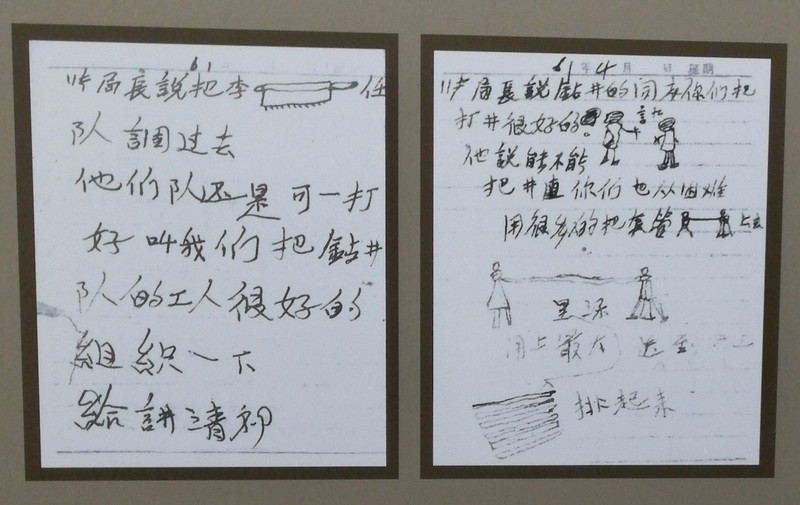 61
许局長說把李 任
队調过去
他们队还是可一打
好叫我们把鉆井
队的工人很好的
組织一下
給講清初
61年4月 日 星期
许局長說鉆井的 你们把
打井很好的
他說能不能
把井直你们也从困难
用很多的把 管 上去
用上最大
排起来